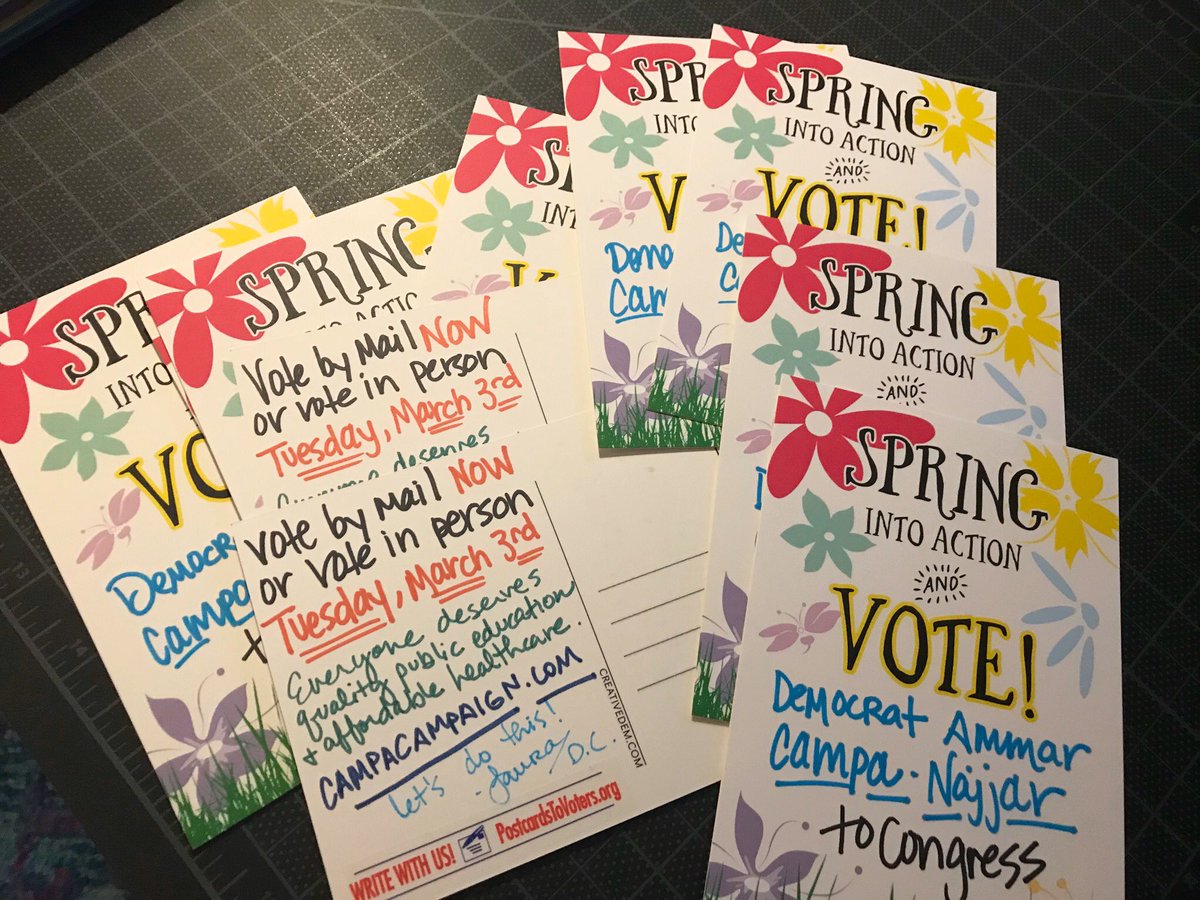 SPRING
INTO
VO
Democra
Campa
to
SPRING
INTO ACTIO
S
IN
V
SPR
INTO
V
Demo
Cam
SPRING
INTO ACTION
AND
VOTE!
De
C
SPRING
INTO ACTION
AND
Vote by Mail NOW
or vote in person
Tuesday, March 3rd
Everyone deserves
Vote by Mail NOW
or vote in person
Tuesday, March 3rd
Everyone deserves
quality public education
& affordable healthcare.
CAMPACAMPAIGN.COM
let's do this!
-Laura/
D.C.
WRITE WITH US! PostcardsToVoters.org
CREATIVEDEM.COM
SPRING
INTO ACTION
AND
VOTE!
Democrat Ammar
Campa-Najjar
to Congress